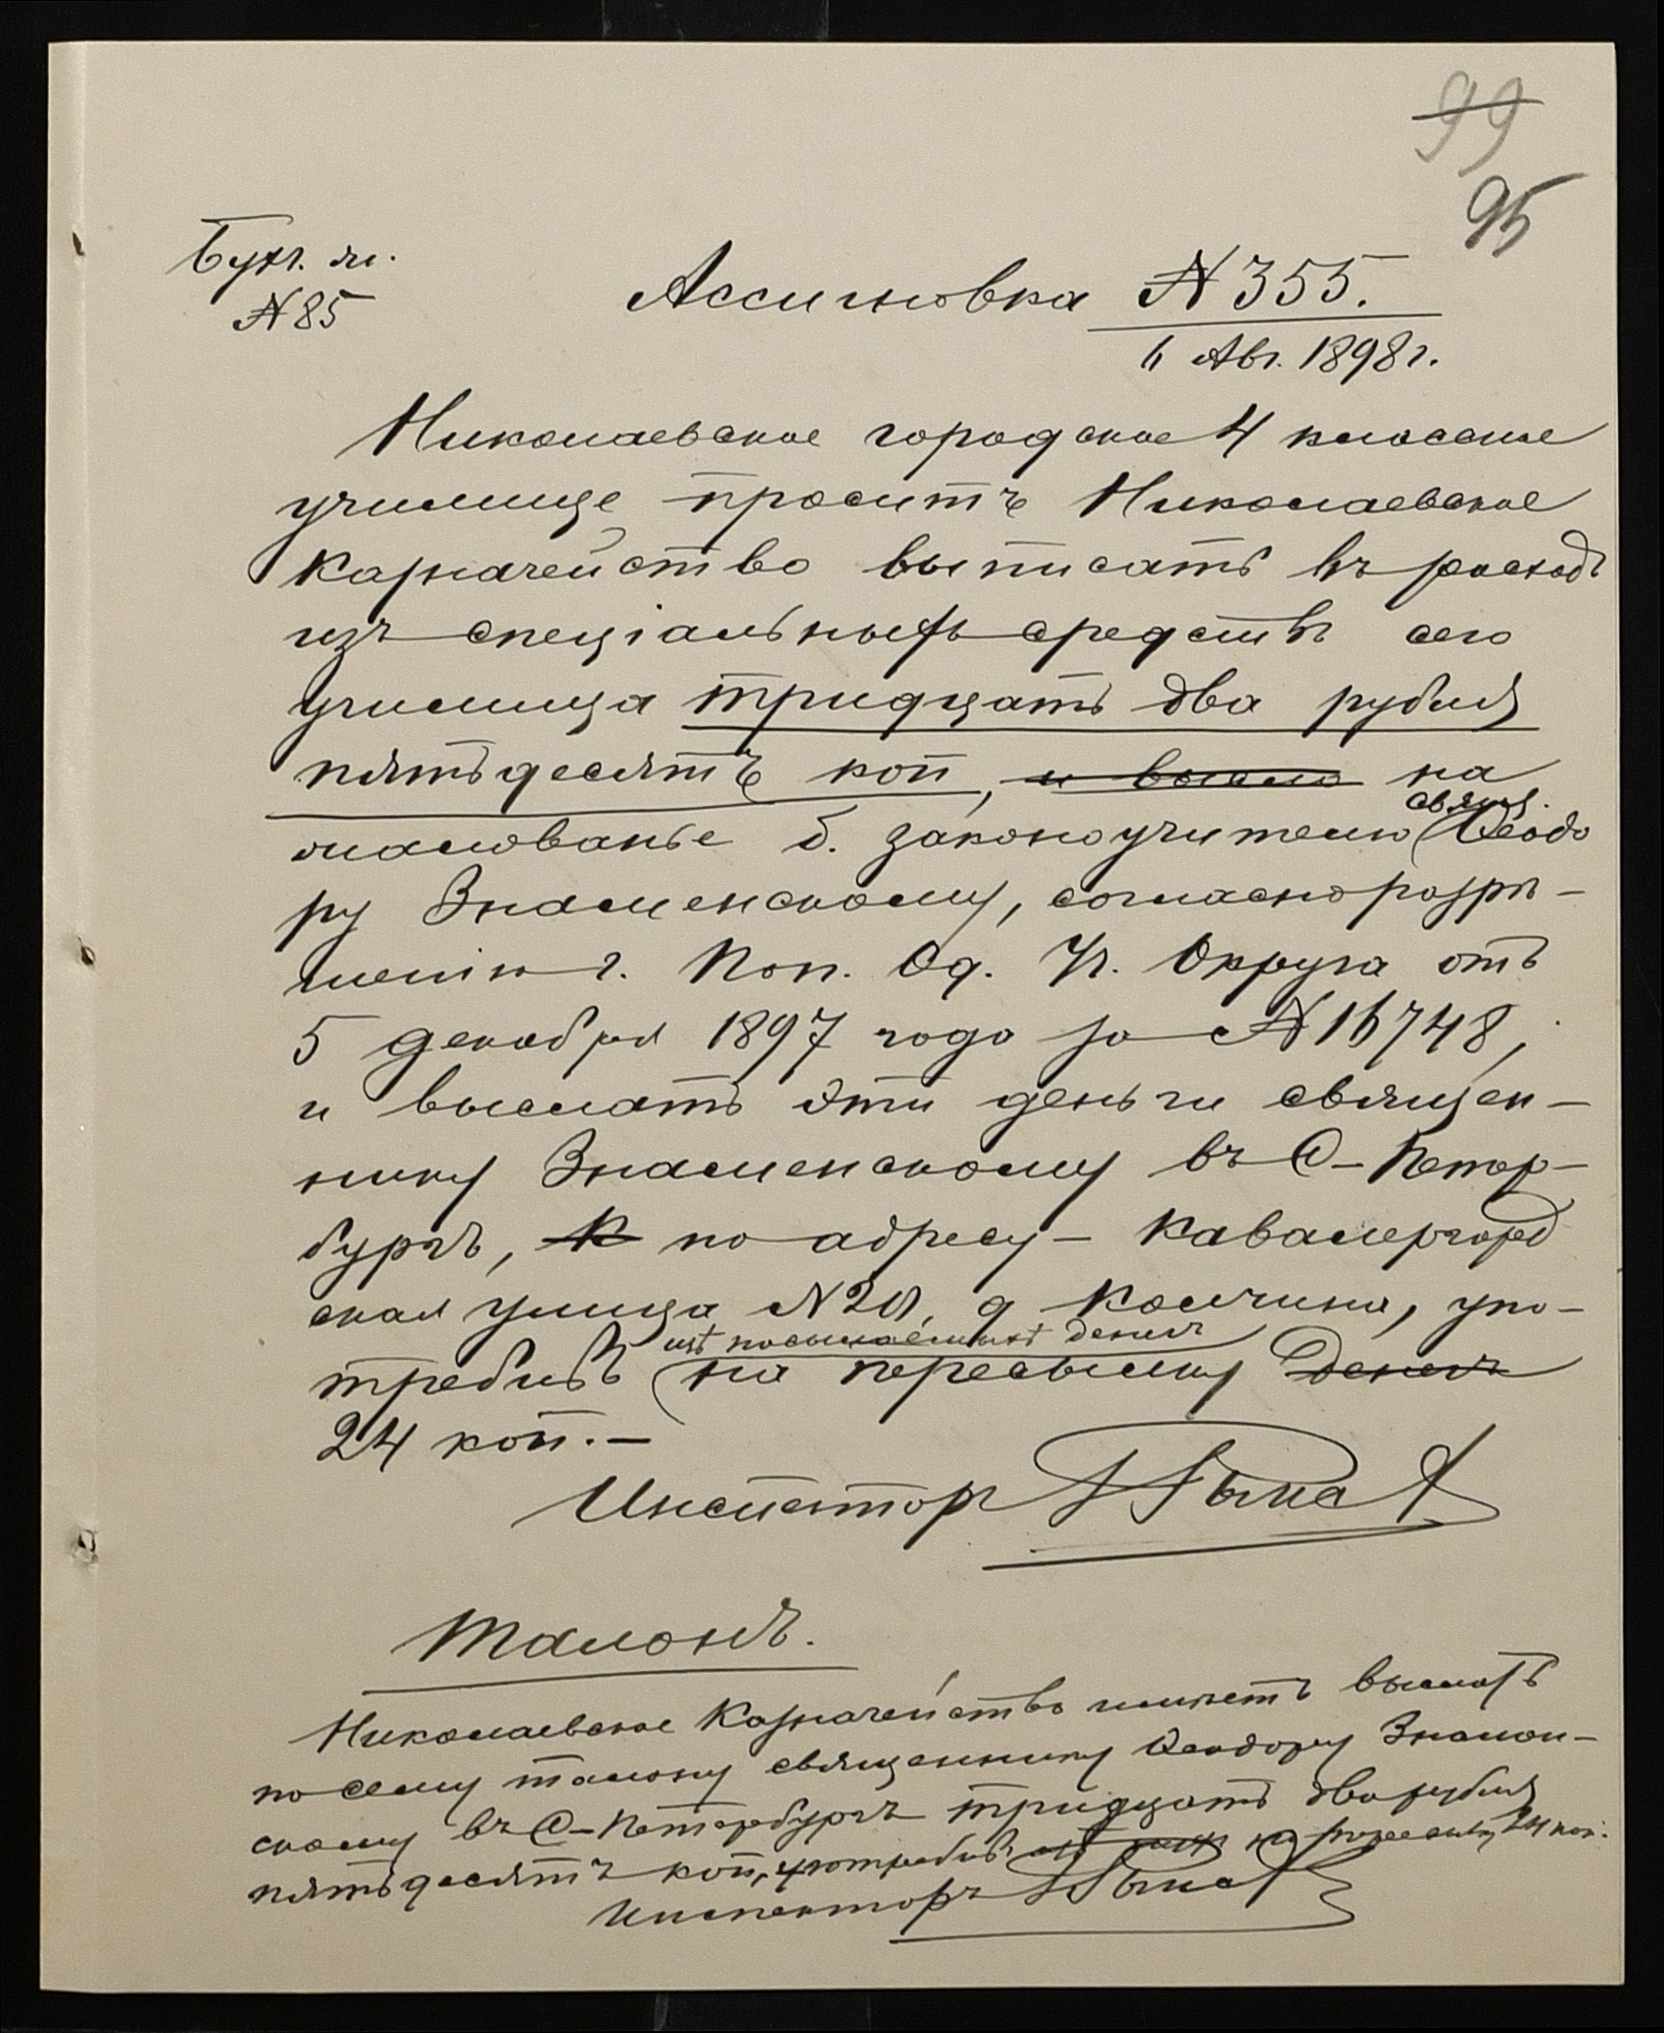 99
95
Бухг. ли.
№ 85
Ассигновка № 355.
6 Авг. 1898 г.
Николаевское городское 4 классное
училище проситъ Николаевское
Казначейство выписать въ расходъ
изъ спеціальныхъ средствъ сего
училища тридцать два рубля
пятьдесятъ коп, и высла на
свящ.
жалованье б. законоучителю Ѳеодо
ру Знаменскому, согласно разрѣ-
шенію г. Поп. Од. Уч. Округа отъ
5 декабря 1897 года за № 16748,
и выслать эти деньги священ-
нику Знаменскому въ С-Петер-
бургъ, К по адресу - Кавалергард
ская улица № 20, д Колчина, упо-
изъ посылаемыхъ денегъ
требивъ на пересылку денегъ
24 коп. -
Инспекторъ
Талонъ.
Николаевское Казначейство имѣетъ выслать
по сему талону священнику Ѳеодору Знамен-
скому въ С-Петербургъ тридцать два рубля
пятьдесятъ коп, употребивъ на пересылку 24 коп.
Инспекторъ